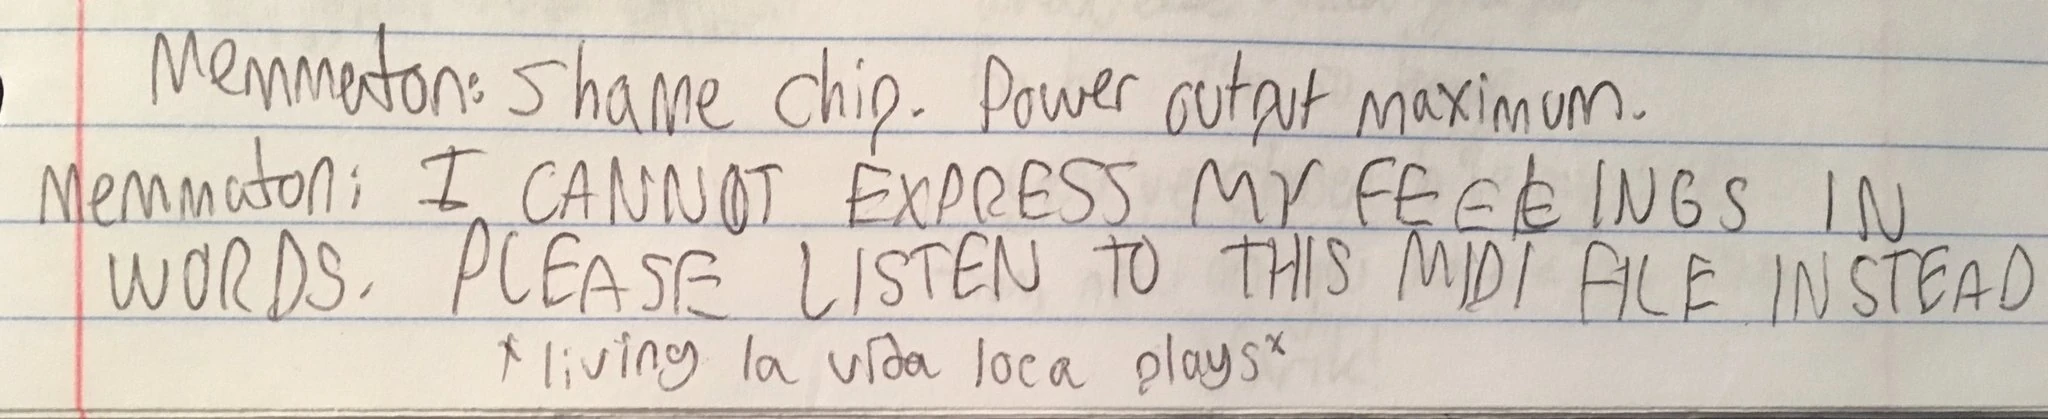 Memmeton: Shame chip. Power output maximum.
Memmaton: I CANNOT EXPRESS MY FEELINGS IN
WORDS. PLEASE LISTEN TO THIS MIDI FILE INSTEAD
*living la vida loca plays*